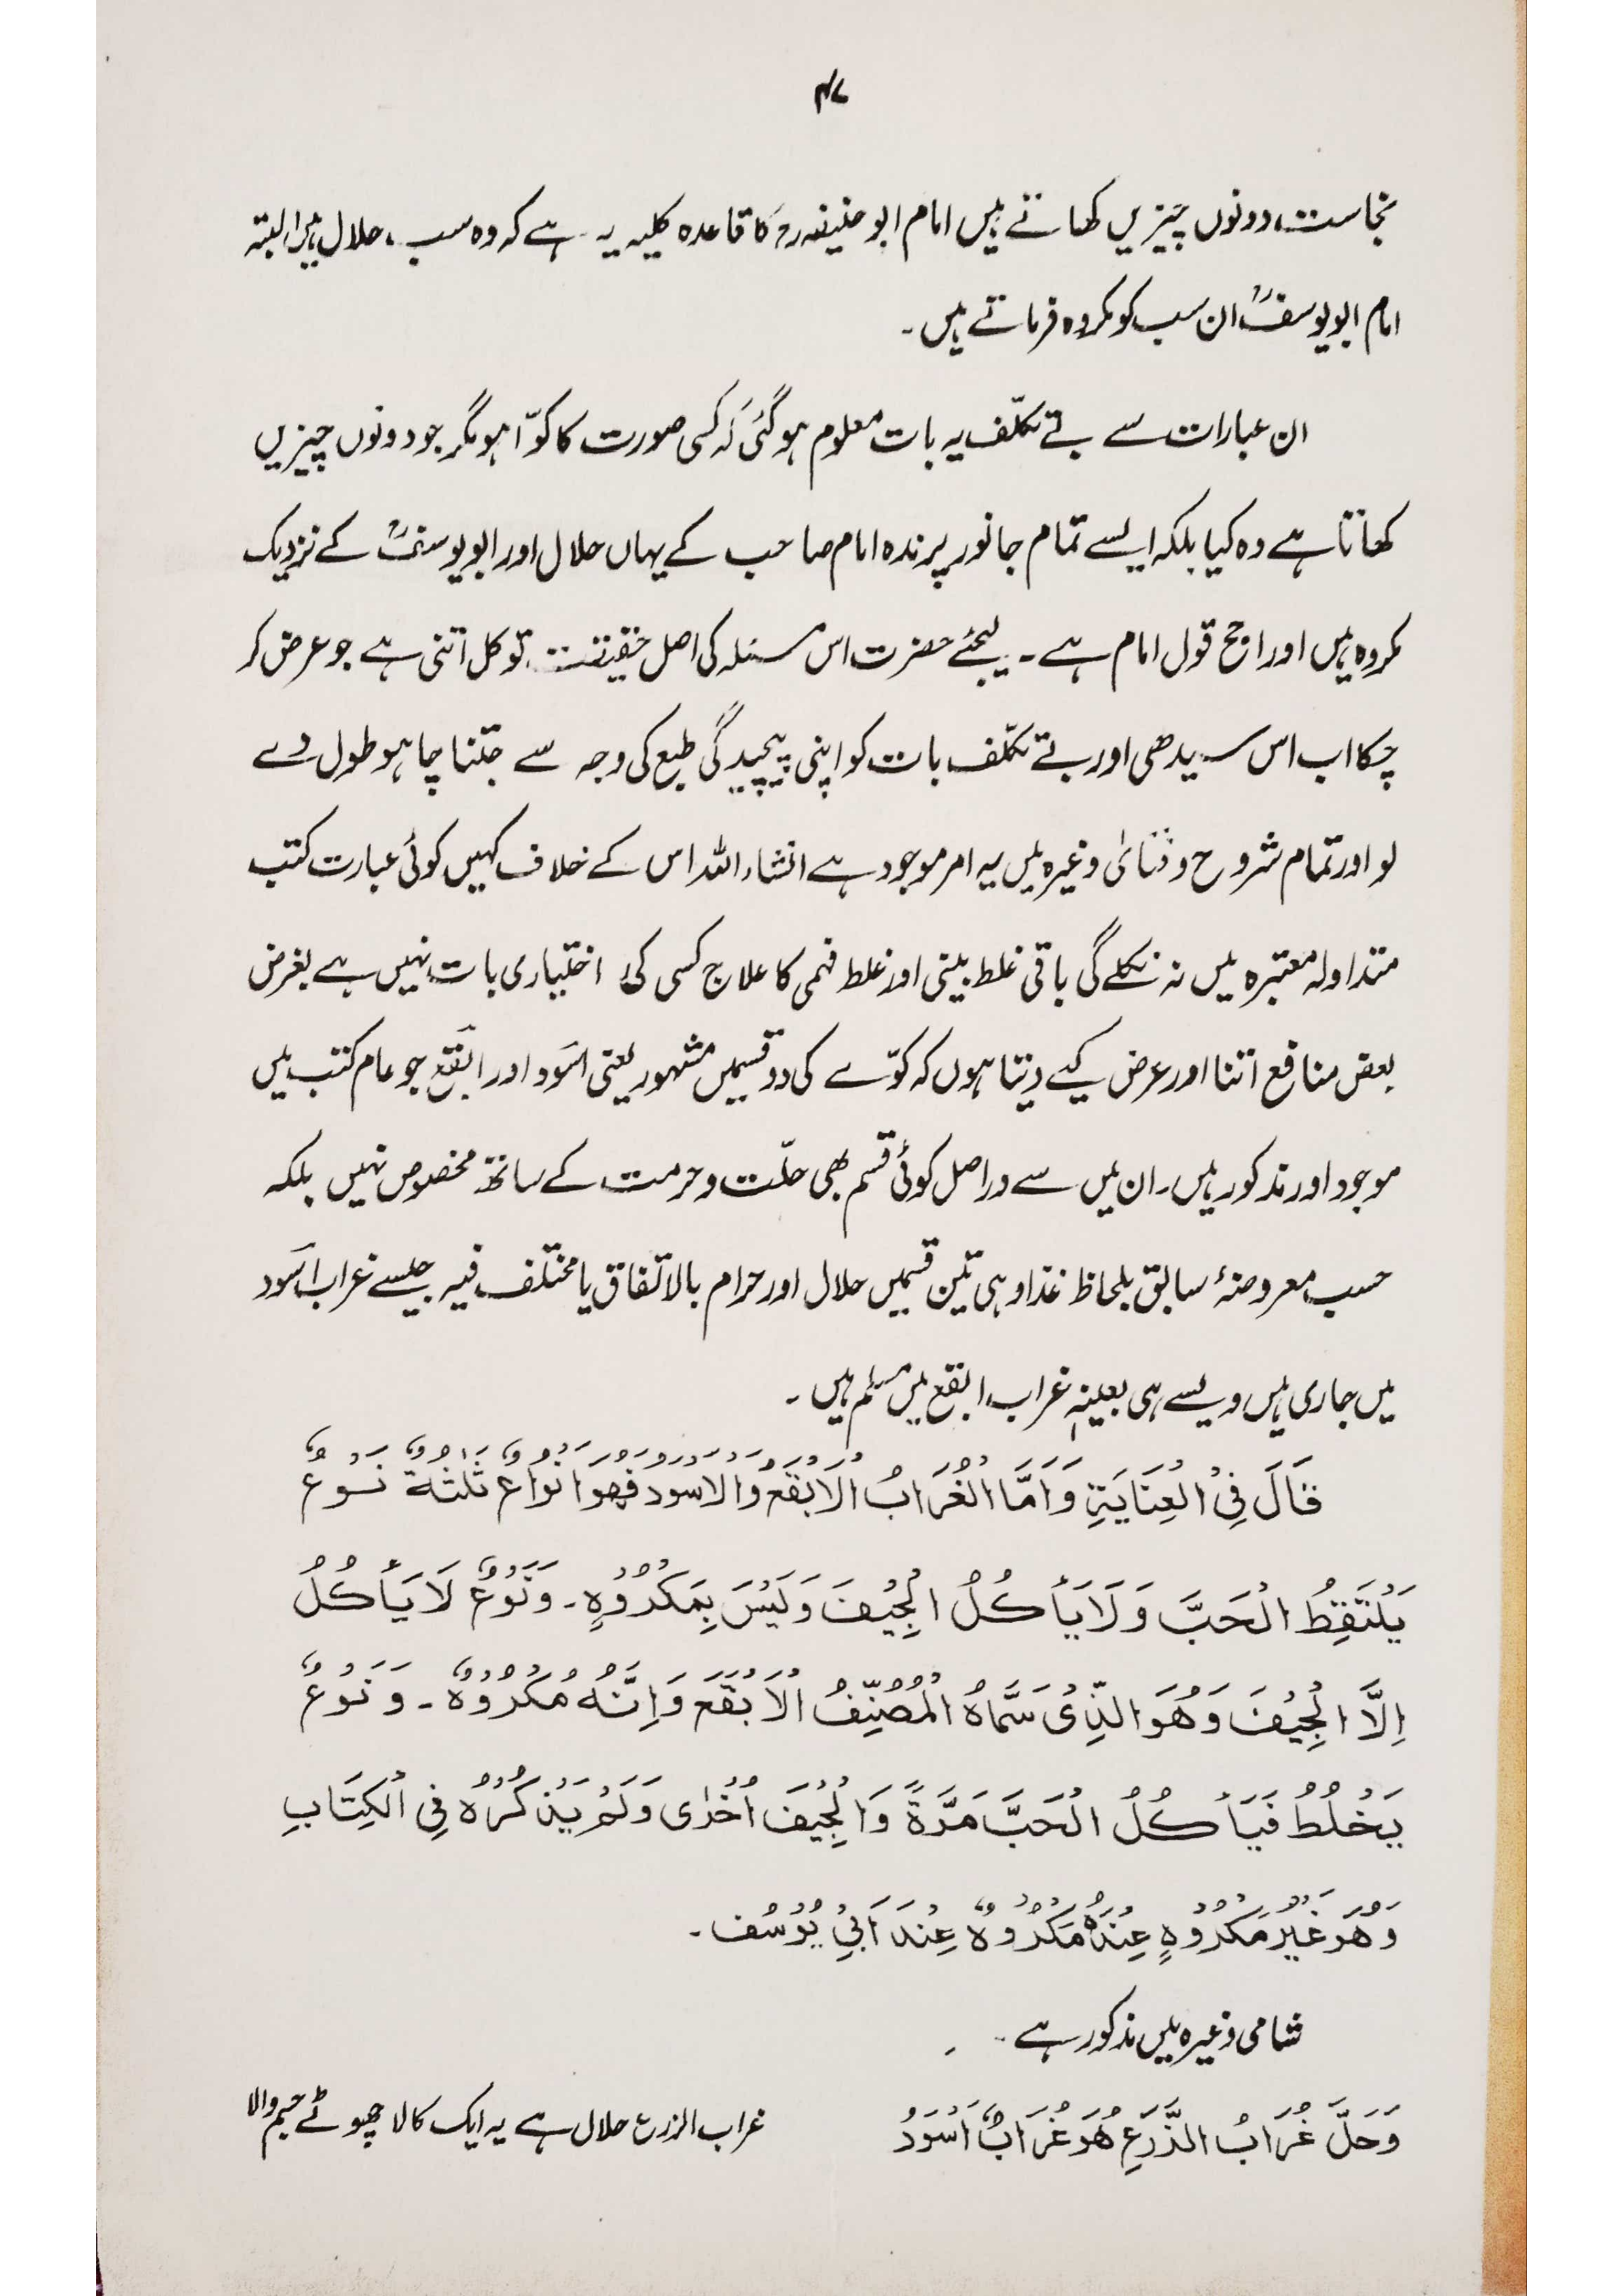 ۴۷
نجاست، دونوں چیزیں کھاتے ہیں امام ابو حنیفہ رح کا قاعدہ کلیہ یہ ہے کہ وہ سب، حلال ہیں البتہ
امام ابو یوسفؒ ان سب کو مکروہ فرماتے ہیں۔
ان عبارات سے بے تکلّف یہ بات معلوم ہو گئی کہ کسی صورت کا کوّا ہو مگر جو دونوں چیزیں
کھاتا ہے وہ کیا بلکہ ایسے تمام جانور پرندہ امام صاحب کے یہاں حلال اور ابو یوسفؒ کے نزدیک
مکروہ ہیں اور ارجح قول امام ہے۔ لیجئے حضرت اس مسئلہ کی اصل حقیقت تو کل اتنی ہے جو عرض کر
چکا اب اس سیدھی اور بے تکلّف بات کو اپنی پیچیدگی طبع کی وجہ سے جتنا چاہو طول دے
لو اور تمام شروح و فتاویٰ وغیرہ میں یہ امر موجود ہے انشاء اللہ اس کے خلاف کہیں کوئی عبارت کتب
متداولہ معتبرہ میں نہ نکلے گی باقی غلط بینی اور غلط فہمی کا علاج کسی کی اختیاری بات نہیں ہے بغرض
بعض منافع اتنا اور عرض کیے دیتا ہوں کہ کوّے کی دو قسمیں مشہور یعنی اسَود اور ابقَع جو عام کتب میں
موجود اور مذکور ہیں۔ ان میں سے دراصل کوئی قسم بھی حلّت و حرمت کے ساتھ مخصوص نہیں بلکہ
حسب معروضۂ سابق بلحاظ غذا وہی تین قسمیں حلال اور حرام بالاتفاق یا مختلف فیہ جیسے غراب اسَود
میں جاری ہیں ویسے ہی بعینہٖ غراب ابقع میں مسلم ہیں۔
قَالَ فِی الْعِنَایَۃِ وَاَمَّا الْغُرَابُ الْاَبْقَعُ وَالْاَسْوَدُ فَھُوَ اَنْوَاعٌ ثَلٰثَۃٌ نَوْعٌ
یَلْتَقِطُ الْحَبَّ وَلَایَأْکُلُ الْجِیْفَ وَلَیْسَ بِمَکْرُوْہٍ۔ وَنَوْعٌ لَایَأْکُلُ
اِلَّا الْجِیْفَ وَھُوَ الَّذِیْ سَمَّاہُ الْمُصَنِّفُ الْاَبْقَعَ وَاِنَّہُ مَکْرُوْہٌ۔ وَنَوْعٌ
یَخْلُطُ فَیَأْکُلُ الْحَبَّ مَرَّۃً وَالْجِیْفَ اُخْرٰی وَلَمْ یَذْکُرْہُ فِی الْکِتَابِ
وَھُوَ غَیْرُ مَکْرُوْہٍ عِنْدَہُ مَکْرُوْہٌ عِنْدَ اَبِیْ یُوْسُف۔
شامی وغیرہ میں مذکور ہے
وَحَلَّ غُرَابُ الزَّرْعِ ھُوَ غُرَابٌ اَسْوَدُ
غراب الزرع حلال ہے یہ ایک کالا چھوٹے جسم والا